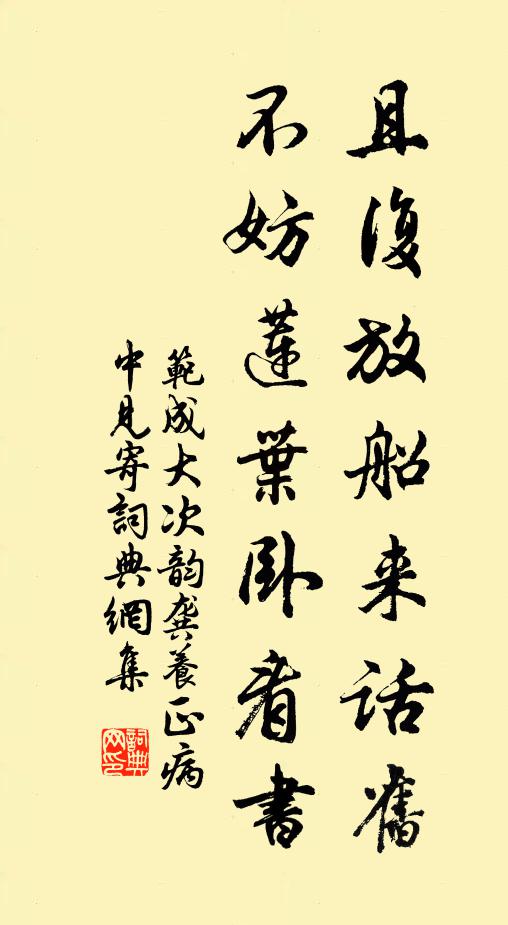 且復放船来話舊
不妨蓮葉卧看書
範成大次韵龔養正病
中見寄詞典網集
詞典
网印